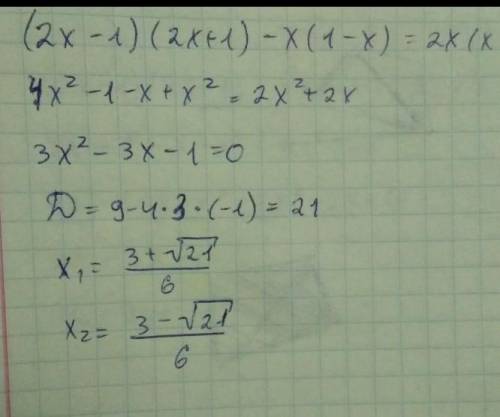 (2x-1)(2x+1)-x(1-x)=2x(x
4x²-1-x+x²=2x²+2x
3x²-3x-1=0
D=9-4·3·(-1)=21
x₁=(3+√21)/6
x₂=(3-√21)/6